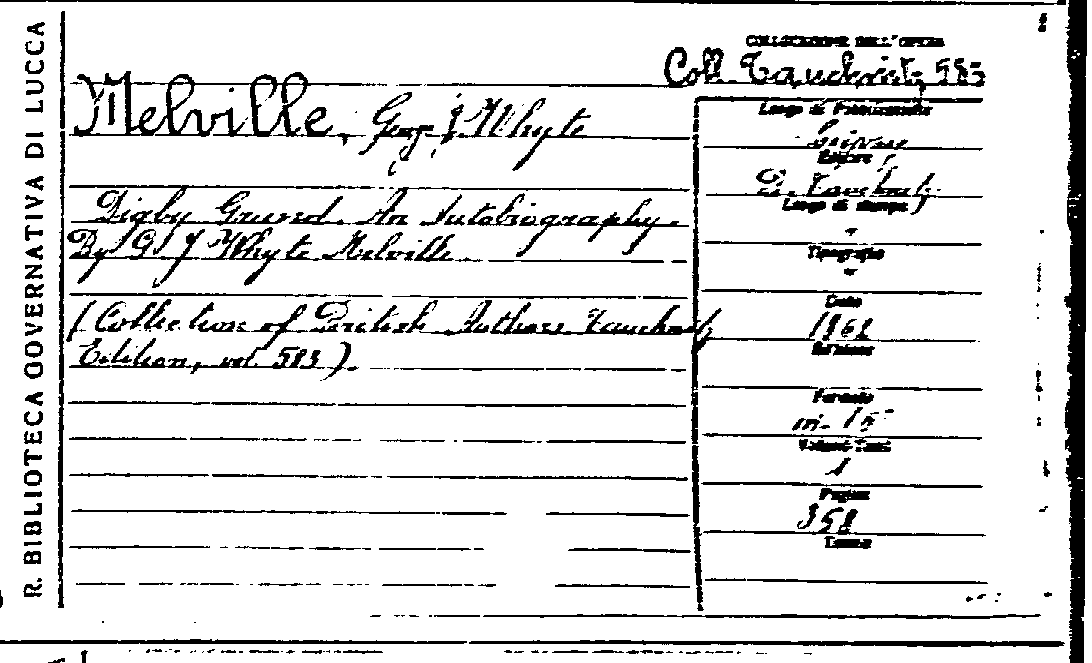 R. BIBLIOTECA GOVERNATIVA DI LUCCA
COLLOCAZIONE DELL'OPERA
Coll. Tauchnitz 583
Melville, G. J. Whyte
Digby Grand. An Autobiography.
By G. J. Whyte Melville
(Collection of British Authors Tauchnitz
Edition, vol. 583).
Luogo di Pubblicazione
Editore
B. Tauchnitz
Luogo di stampa
"
Tipografia
"
Data
1862
Edizione
Formato
in-15°
Volumi-Tomi
1
Pagine
358